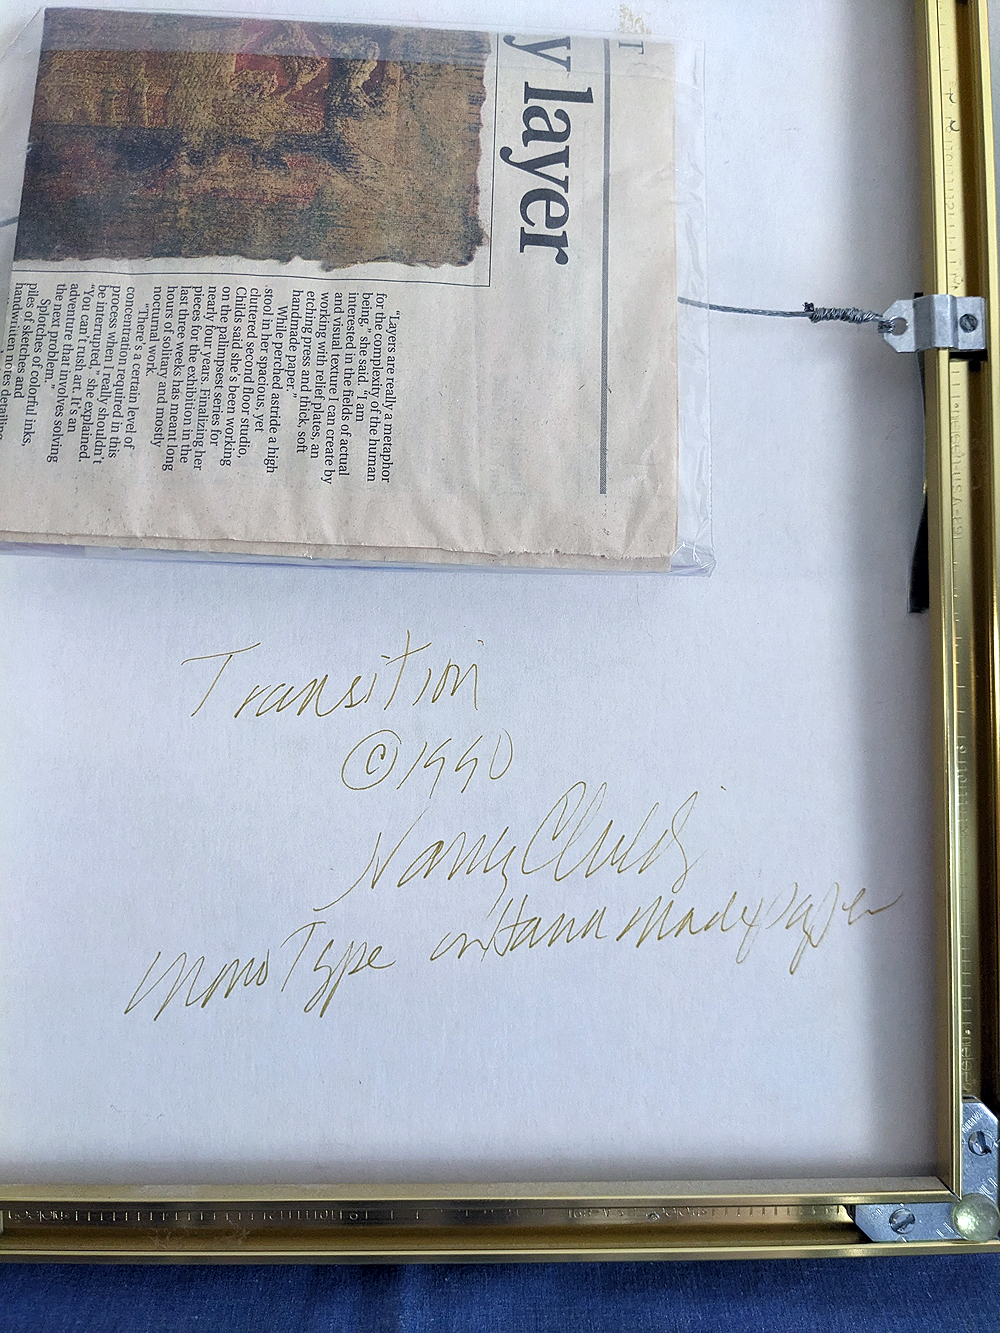 y layer
"Layers are really a metaphor
for the complexity of the human
being," she said. "I am
interested in the fields of actual
and visual texture I can create by
working with relief plates, an
etching press and thick, soft
handmade paper."
While perched astride a high
stool in her spacious, yet
cluttered second floor studio,
Childs said she's been working
on the palimpsest series for
nearly four years. Finalizing her
pieces for the exhibition in the
last three weeks has meant long
hours of solitary and mostly
nocturnal work.
"There's a certain level of
concentration required in this
process when I really shouldn't
be interrupted," she explained.
"You can't rush art. It's an
adventure that involves solving
the next problem."
Splotches of colorful inks,
piles of sketches and
handwritten notes detailing
Transition
©1990
Nancy Childs
MonoType on Hand Made paper